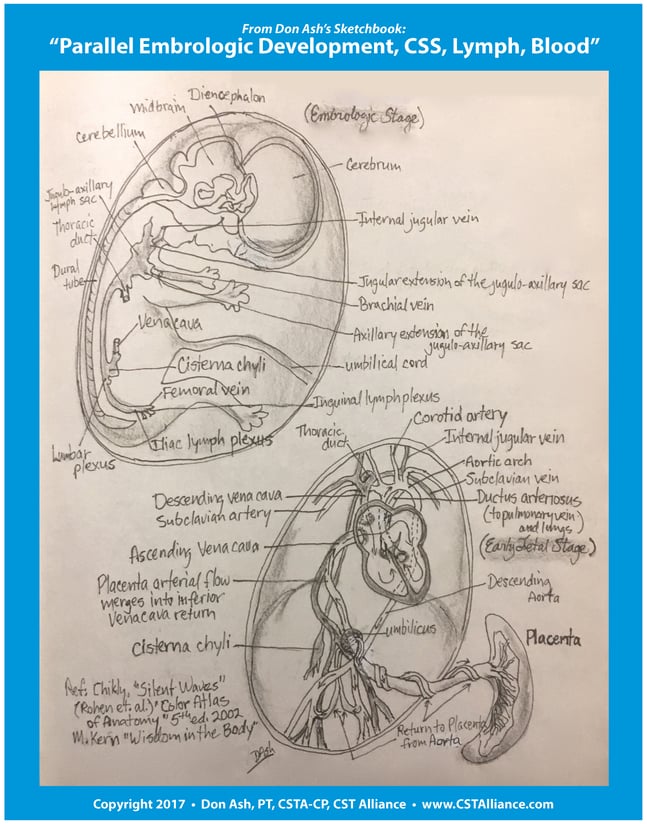 From Don Ash's Sketchbook:
"Parallel Embrologic Development, CSS, Lymph, Blood"
(Embrologic Stage)
Diencephalon
midbrain
cerebellium
Cerebrum
Jugulo-axillary
lymph sac
Thoracic
duct
Internal jugular vein
Dural
tube
Jugular extension of the jugulo-axillary sac
Brachial vein
Vena cava
Axillary extension of the
jugulo-axillary sac
Cisterna chyli
umbilical cord
Femoral vein
Inguinal lymph plexus
Iliac lymph plexus
Lumbar
plexus
Thoracic
duct
Corotid artery
Internal jugular vein
Aortic arch
Subclavian vein
Descending vena cava
Subclavian artery
Ductus arteriosus
(to pulmonary vein)
and lungs
(Early Fetal Stage)
Ascending Vena cava
Placenta arterial flow
merges into inferior
Vena cava return
Descending
Aorta
umbilicus
Cisterna chyli
Placenta
Ref: Chikly, "Silent Waves"
(Rohen et. al.) "Color Atlas
of Anatomy" 5th ed. 2002
M. Kern "Wisdom in the Body"
Return to Placenta
from Aorta
DAsh
Copyright 2017 • Don Ash, PT, CSTA-CP, CST Alliance • www.CSTAlliance.com